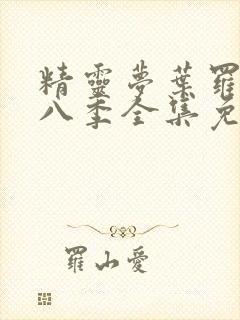 精靈夢葉羅
八季全集免
羅山愛